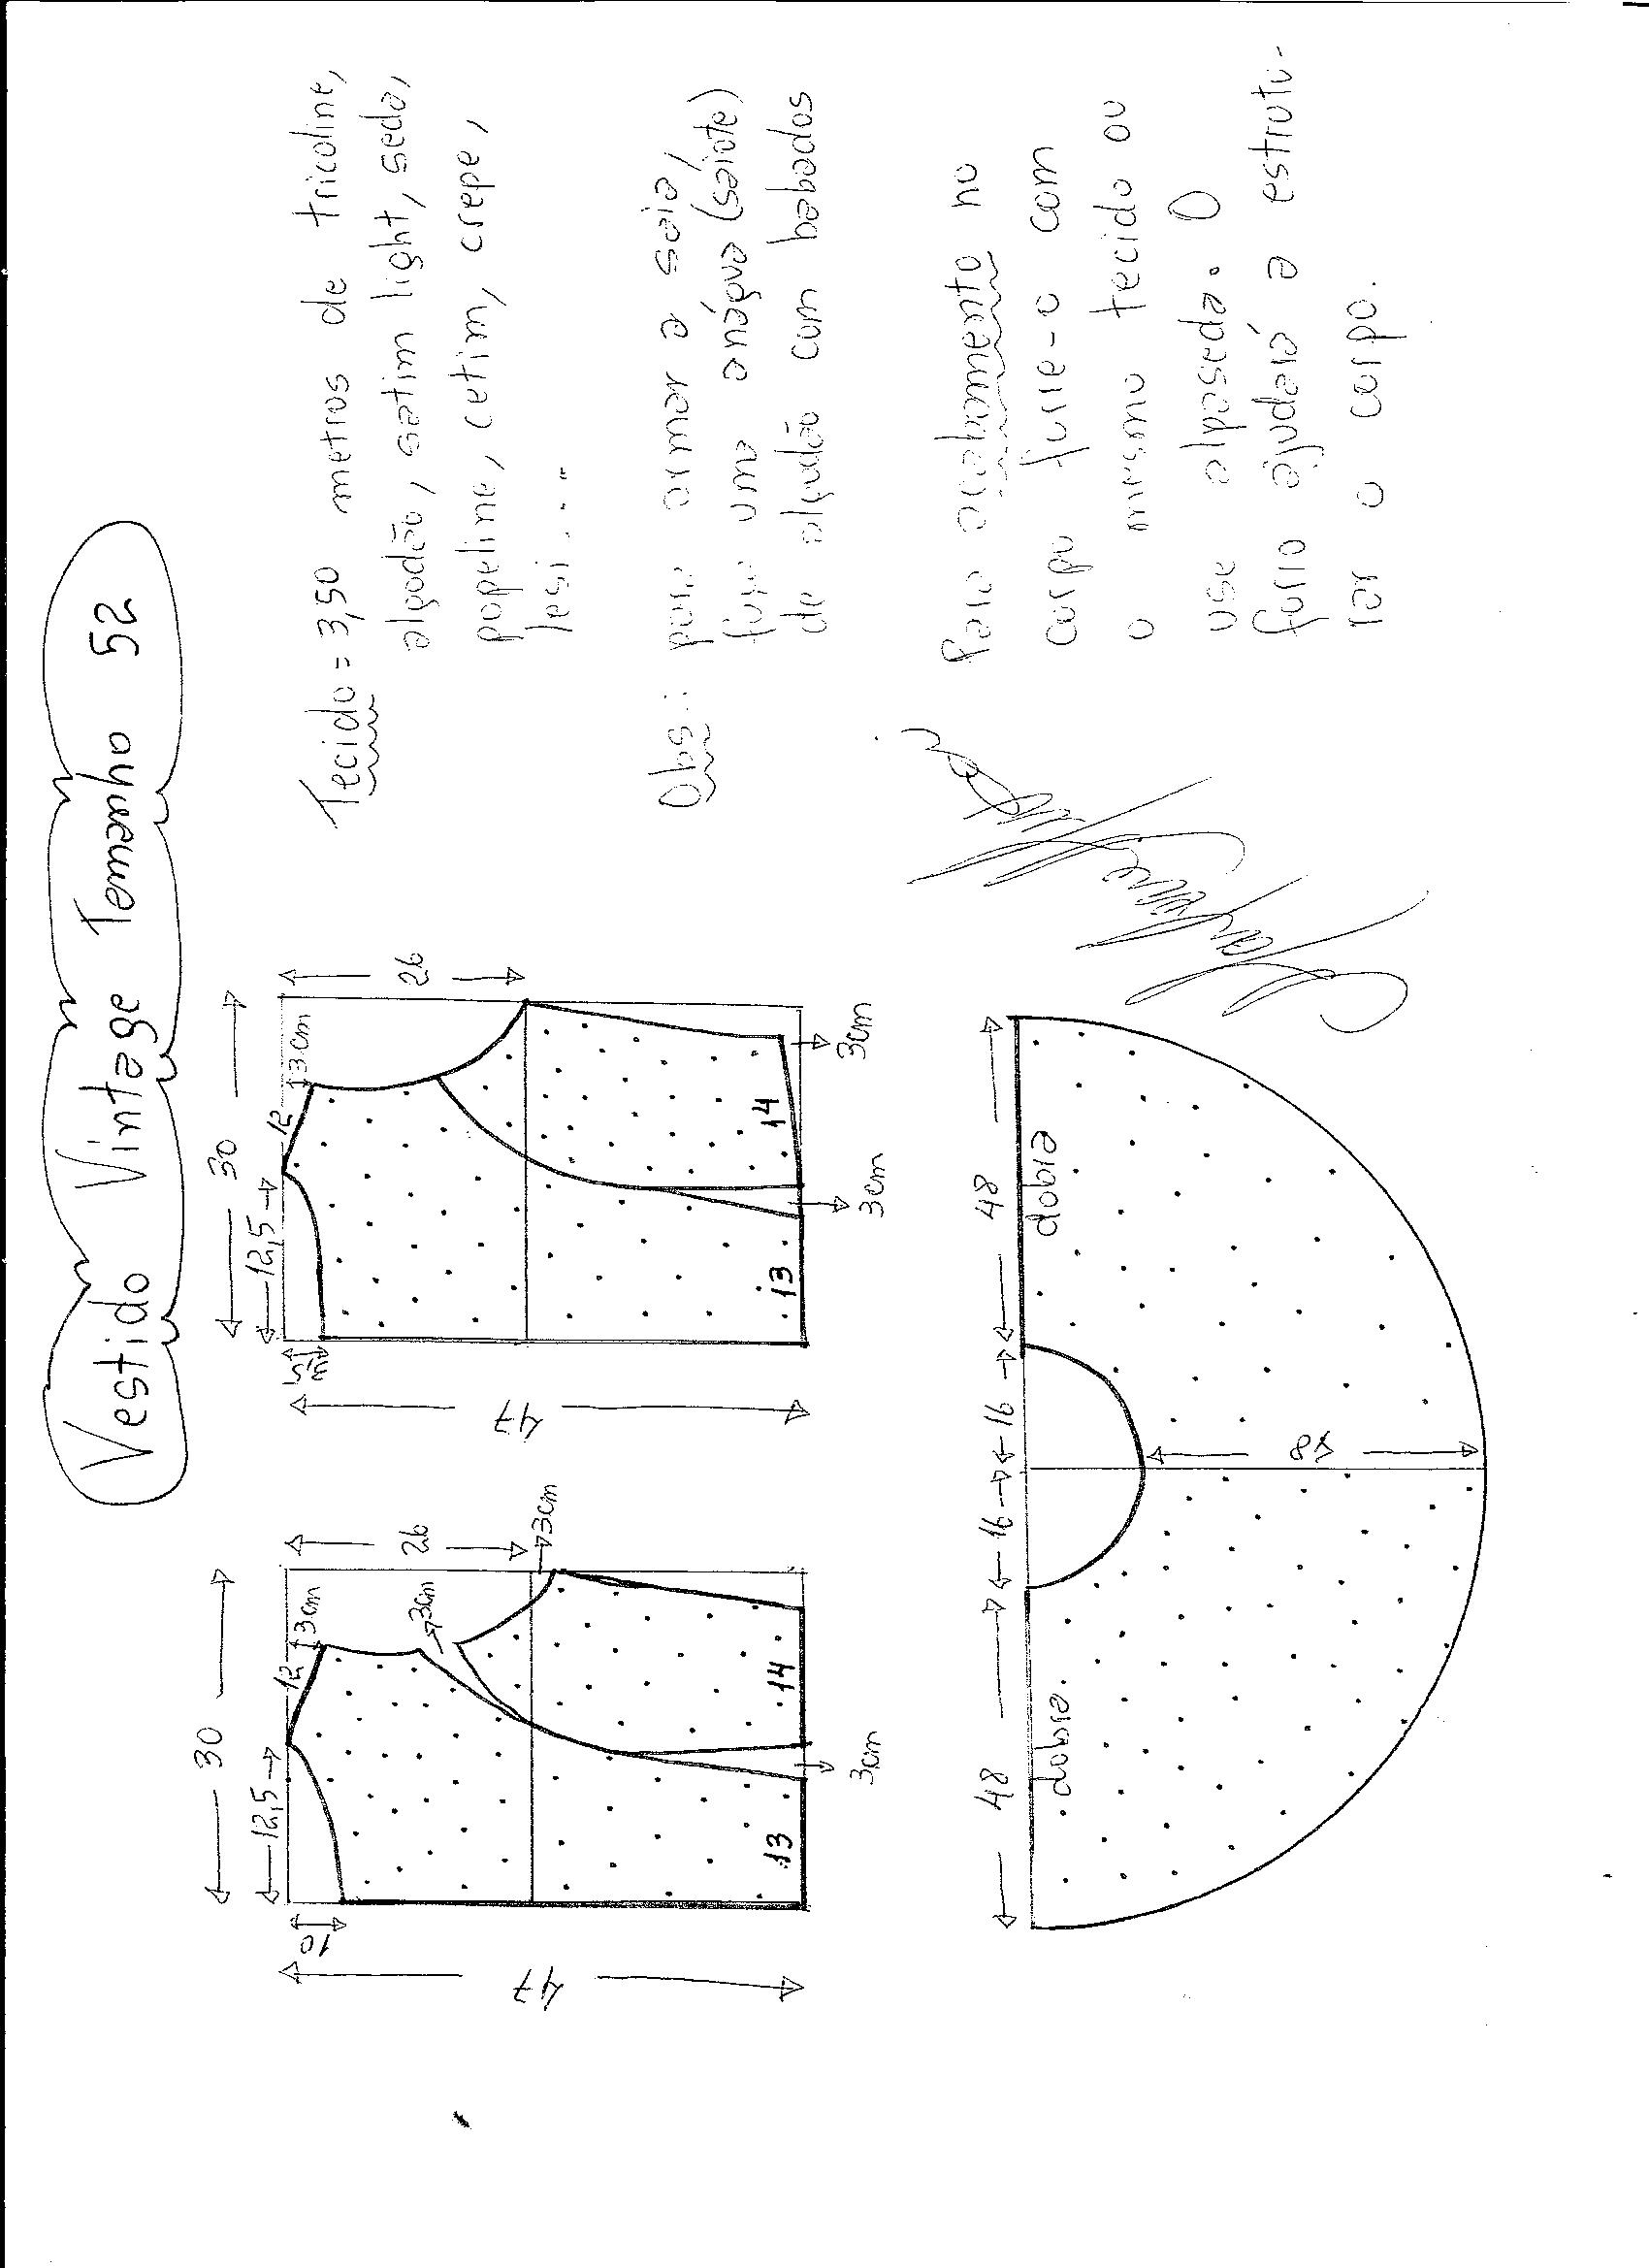 Vestido Vintage Tamanho 52
Tecido = 3,50 metros de tricoline,
algodão, satim light, seda,
popeline, cetim, crepe,
lesi...
Obs.: para armar a saia,
faça uma anágua (saiote)
de algodão com babados
Para acabamento no
corpo forre-o com
o mesmo tecido ou
use alpaseda. O
forro ajudará a estrutu-
rar o corpo.
30
12,5
12
3cm
10
26
3cm
3cm
47
13
14
3cm
30
12,5
12
3cm
3,5
26
47
13
14
3cm
3cm
48
16
16
48
dobra
dobra
48
Marlene Mukai